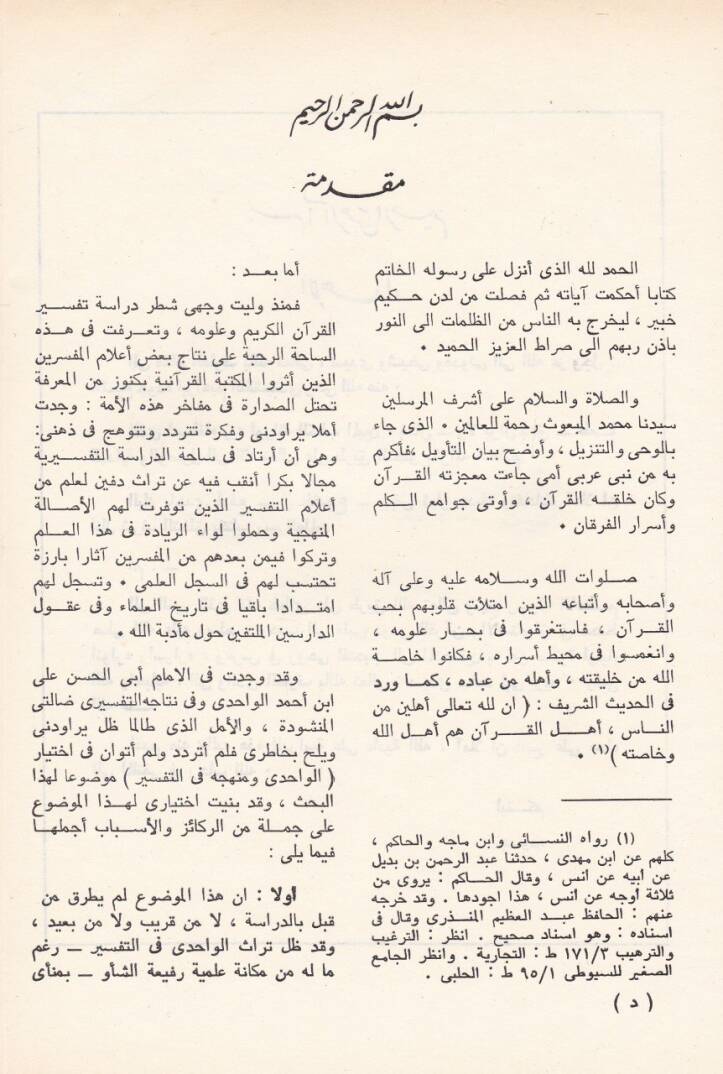 بسم الله الرحمن الرحيم
مقدمة
الحمد لله الذى أنزل على رسوله الخاتم
كتابا أحكمت آياته ثم فصلت من لدن حكيم
خبير ، ليخرج به الناس من الظلمات الى النور
باذن ربهم الى صراط العزيز الحميد .
والصلاة والسلام على أشرف المرسلين
سيدنا محمد المبعوث رحمة للعالمين . الذى جاء
بالوحى والتنزيل ، وأوضح بيان التأويل ،فأكرم
به من نبى عربى أمى جاءت معجزته القرآن
وكان خلقه القرآن ، وأوتى جوامع الكلم
وأسرار الفرقان .
صلوات الله وسلامه عليه وعلى آله
وأصحابه وأتباعه الذين امتلأت قلوبهم بحب
القرآن ، فاستغرقوا فى بحار علومه ،
وانغمسوا فى محيط أسراره ، فكانوا خاصة
الله من خليقته ، وأهله من عباده ، كما ورد
فى الحديث الشريف : ( ان لله تعالى أهلين من
الناس ، أهل القرآن هم أهل الله
وخاصته )(١) .
(١) رواه النسائى وابن ماجه والحاكم ،
كلهم عن ابن مهدى ، حدثنا عبد الرحمن بن بديل
عن أبيه عن أنس ، وقال الحاكم : يروى من
ثلاثة أوجه عن أنس ، هذا اجودها . وقد خرجه
عنهم : الحافظ عبد العظيم المنذرى وقال فى
اسناده : وهو اسناد صحيح . انظر : الترغيب
والترهيب ١٧١/٣ ط : التجارية . وانظر الجامع
الصغير للسيوطى ٩٥/١ ط : الحلبى .
أما بعد :
فمنذ وليت وجهى شطر دراسة تفسير
القرآن الكريم وعلومه ، وتعرفت فى هذه
الساحة الرحبة على نتاج بعض أعلام المفسرين
الذين أثروا المكتبة القرآنية بكنوز من المعرفة
تحتل الصدارة فى مفاخر هذه الأمة : وجدت
أملا يراودنى وفكرة تتردد وتتوهج فى ذهنى:
وهى أن أرتاد فى ساحة الدراسة التفسيرية
مجالا بكرا أنقب فيه عن تراث دفين لعلم من
أعلام التفسير الذين توفرت لهم الأصالة
المنهجية وحملوا لواء الريادة فى هذا العلم
وتركوا فيمن بعدهم من المفسرين آثارا بارزة
تحتسب لهم فى السجل العلمى . وتسجل لهم
امتدادا باقيا فى تاريخ العلماء وفى عقول
الدارسين الملتفين حول مأدبة الله .
وقد وجدت فى الامام أبى الحسن على
ابن أحمد الواحدى وفى نتاجه التفسيرى ضالتى
المنشودة ، والأمل الذى طالما ظل يراودنى
ويلح بخاطرى فلم أتردد ولم أتوان فى اختيار
( الواحدى ومنهجه فى التفسير ) موضوعا لهذا
البحث ، وقد بنيت اختيارى لهذا الموضوع
على جملة من الركائز والأسباب أجملها
فيما يلى :
أولا : ان هذا الموضوع لم يطرق من
قبل بالدراسة ، لا من قريب ولا من بعيد ،
وقد ظل تراث الواحدى فى التفسير ــ رغم
ما له من مكانة علمية رفيعة الشأو ــ بمنأى
( د )